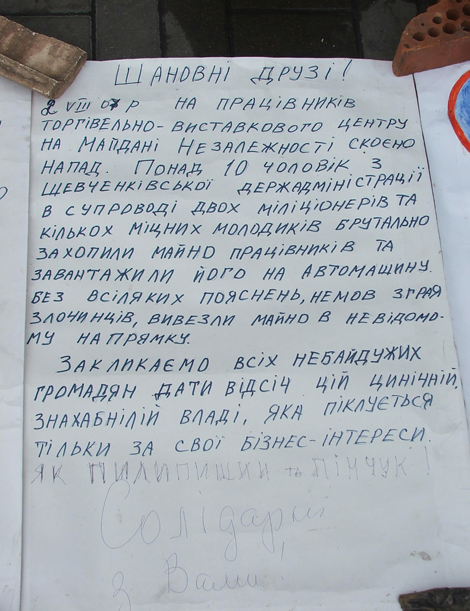 Шановні друзі!
2 VIII 07 р на працівників
торгівельно-виставкового центру
на Майдані Незалежності скоєно
напад. Понад 10 чоловік з
Шевченківської держадміністрації
в супроводі двох міліціонерів та
кількох міцних молодиків брутально
захопили майно працівників та
завантажили його на автомашину.
Без всіляких пояснень, немов зграя
злочинців, вивезли майно в невідомо-
му напрямку.
Закликаємо всіх небайдужих
громадян дати відсіч цій цинічній,
знахабнілій владі, яка піклується
тільки за свої бізнес-інтереси.
як Пилипишин та Пінчук!
Солідарні
з Вами!